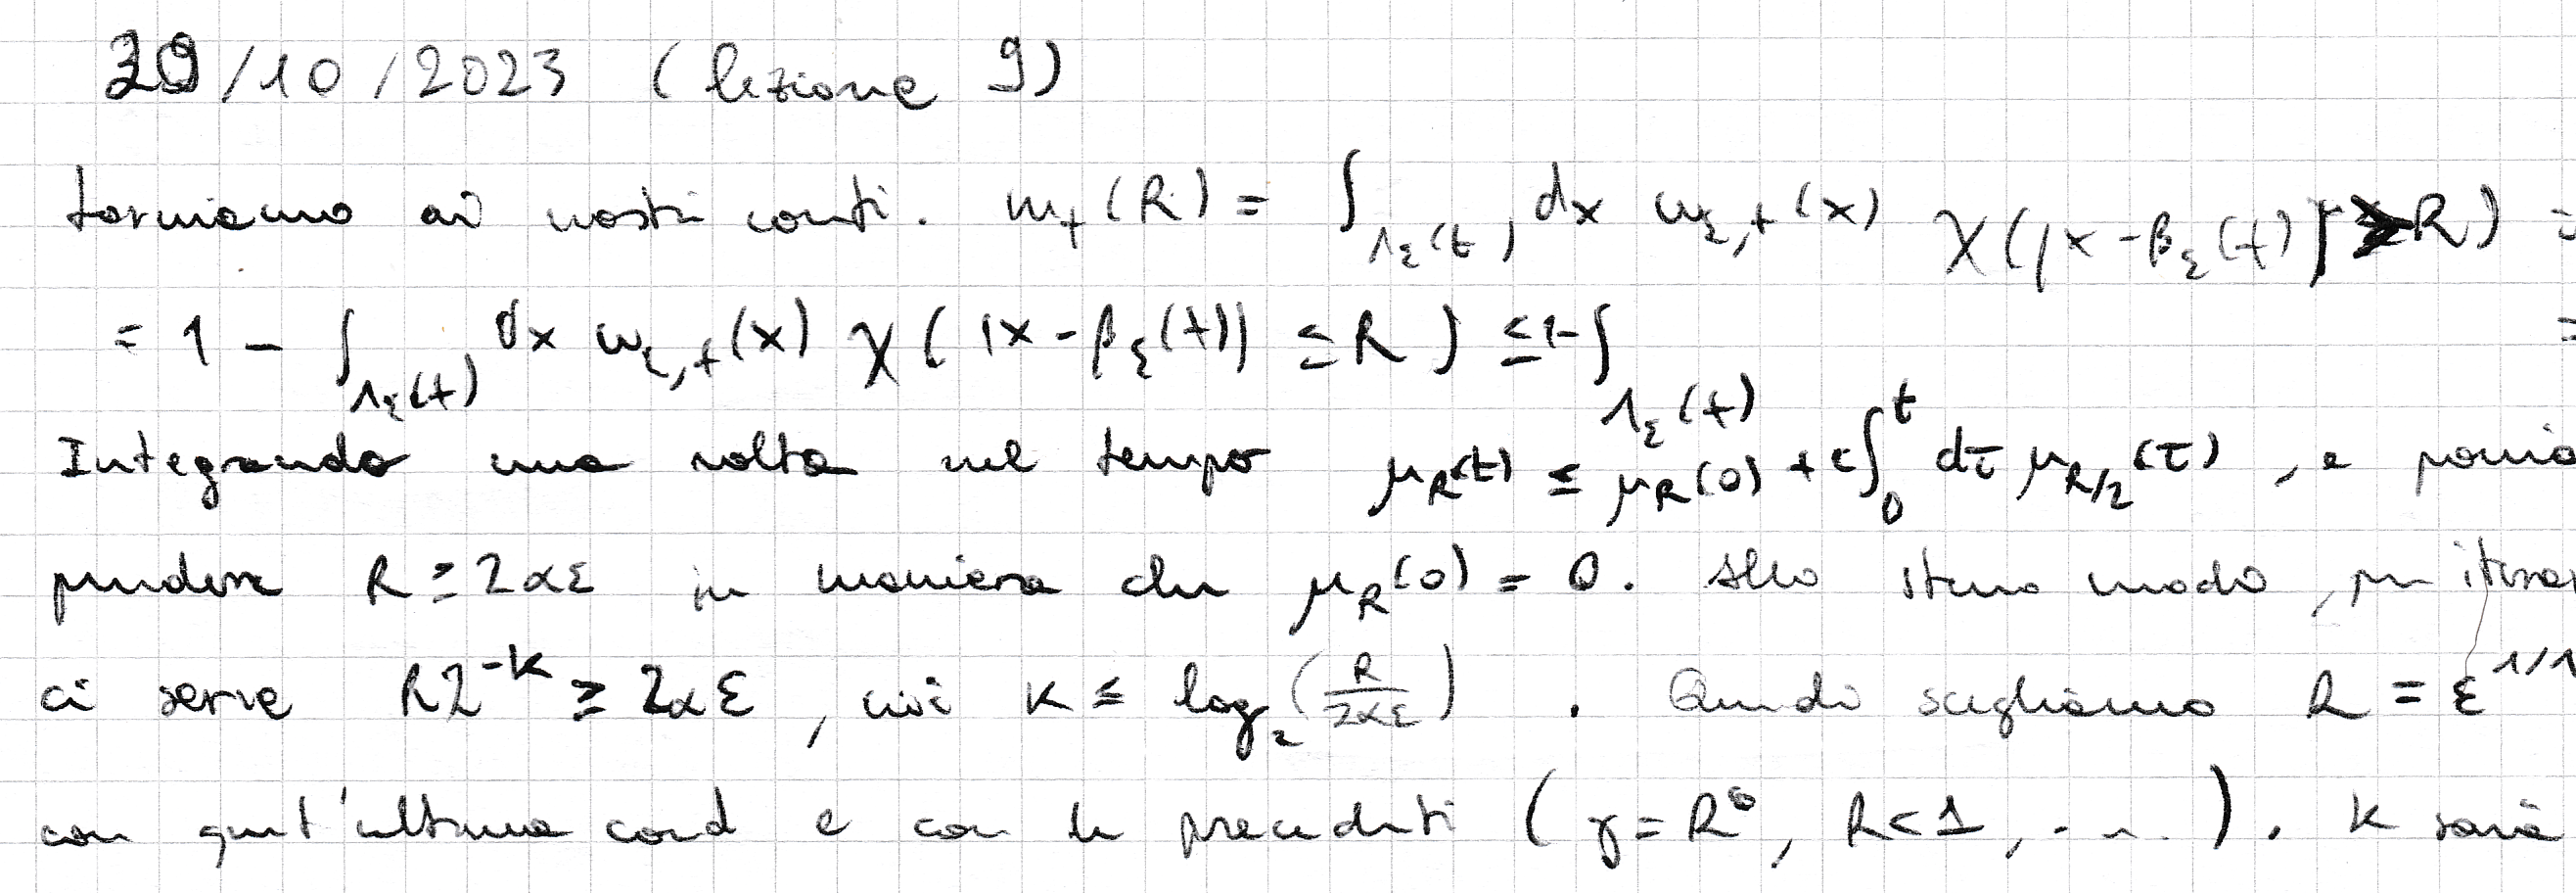 30/10/2023 (lezione 9)
torniamo ai nostri conti. m_t(R) = ∫_{Λ_ε(t)} dx ω_{ε,t}(x) χ(|x-β_ε(t)|>R) =
= 1 - ∫_{Λ_ε(t)} dx ω_{ε,t}(x) χ(|x-β_ε(t)| ≤ R) ≤ 1-∫_{Λ_ε(t)} =
Integrando una volta nel tempo μ_R(t) ≤ μ_R(0) + c∫_0^t dτ μ_{R/2}(τ), e
prendere R ≥ 2αε in maniera che μ_R(0) = 0. Allo stesso modo, per
ci serve R2^{-k} ≥ 2αε, cioè k ≤ log_2(R/2αε). Quindi scegliamo R = ε
con quest'ultima cond e con le precedenti (γ=R^6, R<1, ...). k sarà